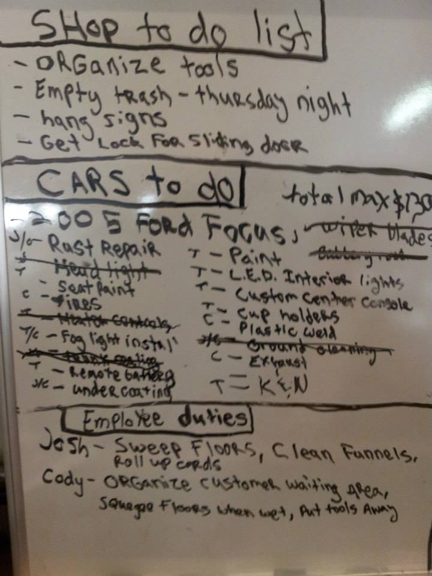 SHOP to do list
- ORGanize tools
- Empty trash - thursday night
- hang signs
- Get Lock For Sliding door
CARS to do
total max $130
- 2005 Ford Focus,
wiper blades
J/c - Rust Repair
T - Paint
T - Head light
T - L.E.D. Interior lights
- Seat Paint
T - Custom Center Console
C - TIRES
T - Cup holders
C - Plastic weld
T/C - Fog light instal'
C - Exhaust
T - Remote Battery
J/C - undercoating
T = K & N
Employee duties
Josh - Sweep Floors, Clean Funnels,
Roll up cords
Cody - ORGanize customer waiting Area,
Squege Floors when wet, Put tools Away